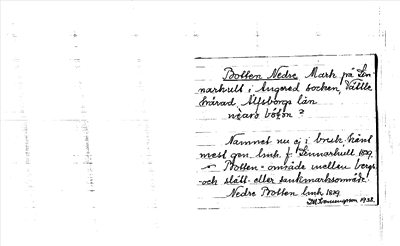 Botten Nedre Mark på Len-
narkult i Angered socken, Vättle
härad Älfsborgs län
nèaro bótòn ?
Namnet nu ej i bruk. känt
mest gen. lmk. f. Lennarkull 1829.
Botten = område mellan bergs-
och slätt- eller sankmarksområde.
Nedre Botten lmk 1829
1938.